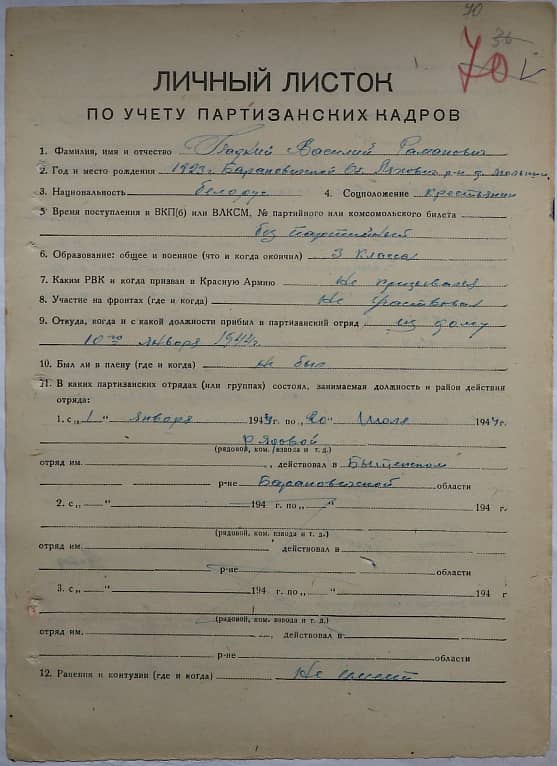 70
36
70
ЛИЧНЫЙ ЛИСТОК
ПО УЧЕТУ ПАРТИЗАНСКИХ КАДРОВ
1. Фамилия, имя и отчество Гладкий Василий Раманович
2. Год и место рождения 1923г Барановичской Об. р-н д.
3. Национальность белорус 4. Соцположение крестьянин
5 Время поступления в ВКП(б) или ВЛКСМ, № партийного или комсомольского билета
без партийный
6. Образование: общее и военное (что и когда окончил) 3 класса
7. Каким РВК и когда призван в Красную Армию Не призывался
8. Участие на фронтах (где и когда) Не участвовал
9. Откуда, когда и с какой должности прибыл в партизанский отряд из дому
10го января 1944г.
10. Был ли в плену (где и когда) не был
11. В каких партизанских отрядах (или группах) состоял, занимаемая должность и район действия
отряда:
1. с „1“ января 1944 г. по „20“ Июля 1944 г.
Рядовой
(рядовой, ком. взвода и т. д.)
отряд им. , действовал в Бытенском
р-не Барановичской области
2. с „ “ 194 г. по „ “ 194 г.
(рядовой, ком. взвода и т. д.)
отряд им. действовал в
р-не области
3. с „ “ 194 г. по „ “ 194 г
(рядовой, ком. взвода и т. д.)
отряд им. , действовал в
р-не области
12. Ранения и контузии (где и когда) Не имеет